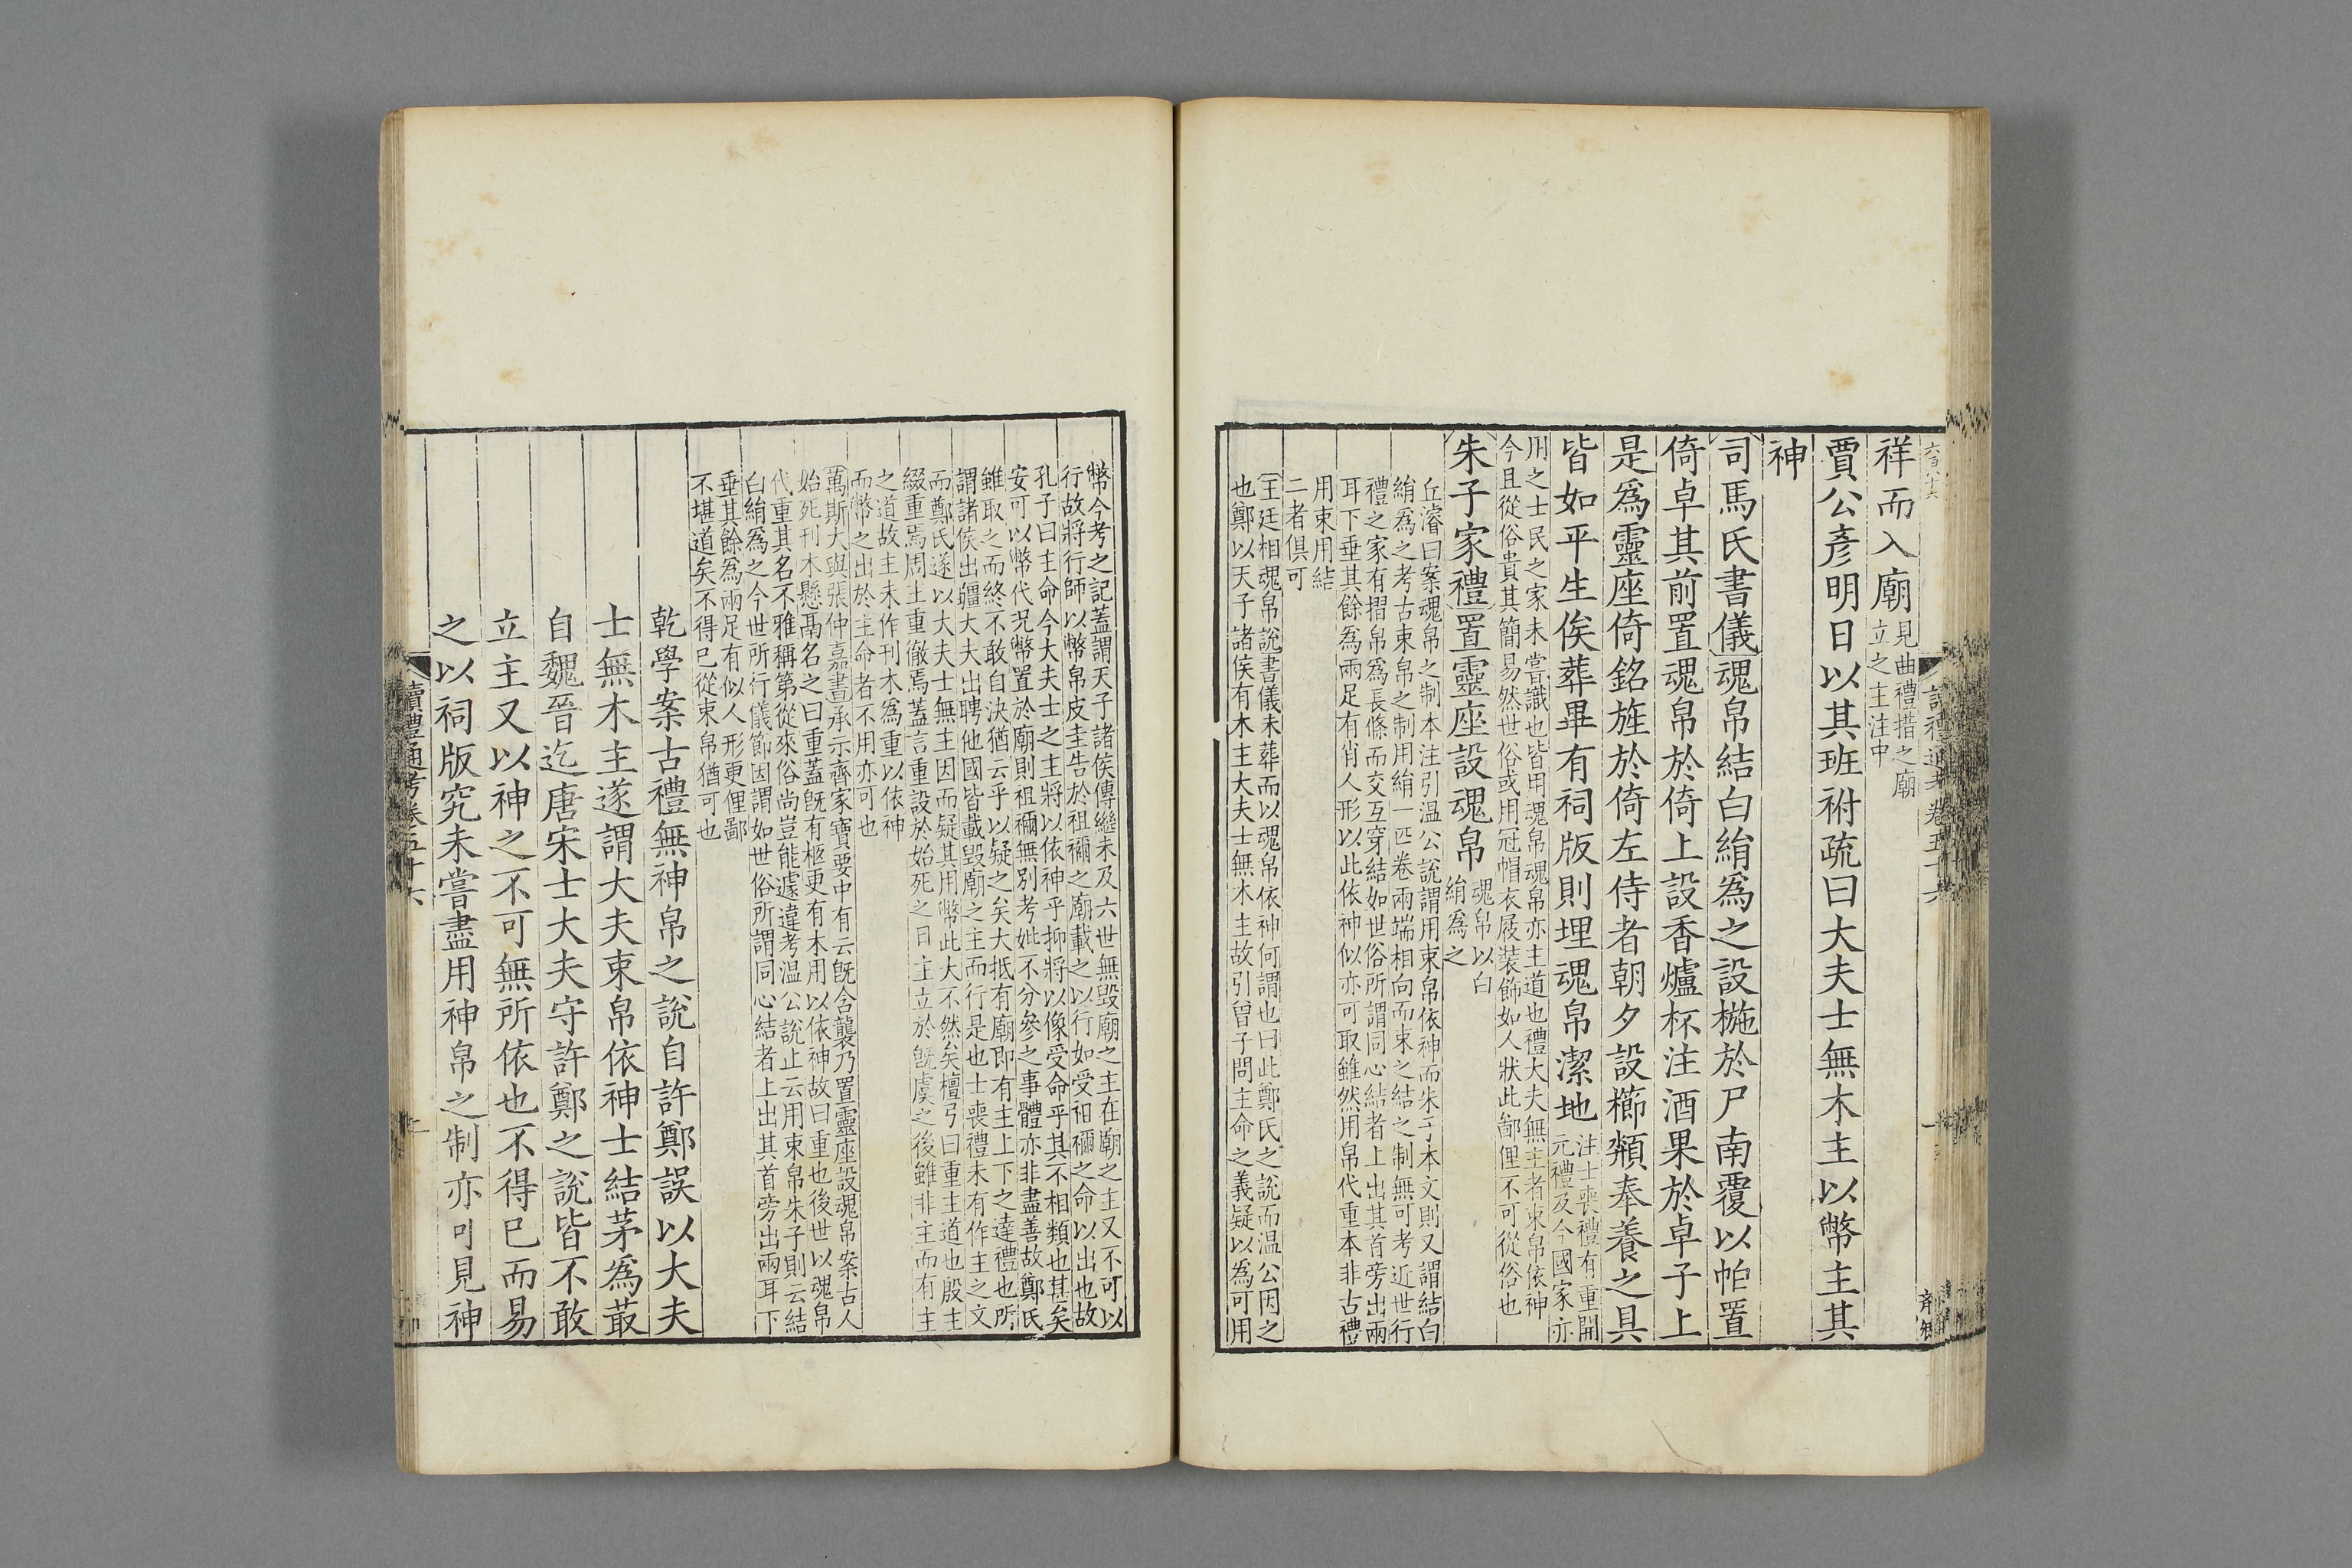 祥而入廟見曲禮措之廟
立之主注中
賈公彥明日以其班祔疏曰大夫士無木主以幣主其
神
司馬氏書儀魂帛結白絹爲之設椸於尸南覆以帕置
倚卓其前置魂帛於倚上設香爐杯注酒果於卓子上
是爲靈座倚銘旌於倚左侍者朝夕設櫛頮奉養之具
皆如平生俟葬畢有祠版則埋魂帛潔地注士喪禮有重開
元禮及今國家亦
用之士民之家未嘗識也皆用魂帛魂帛亦主道也禮大夫無主者束帛依神
今且從俗貴其簡易然世俗或用冠帽衣屐裝飾如人狀此鄙俚不可從俗也
朱子家禮置靈座設魂帛魂帛以白
絹爲之
丘濬曰案魂帛之制本注引温公說謂用束帛依神而朱子本文則又謂結白
絹爲之考古束帛之制用絹一匹卷兩端相向而束之結之制無可考近世行
禮之家有摺帛爲長條而交互穿結如世俗所謂同心結者上出其首旁出兩
耳下垂其餘爲兩足有肖人形以此依神似亦可取雖然用帛代重本非古禮
用束用結
二者俱可
王廷相魂帛說書儀未葬而以魂帛依神何謂也曰此鄭氏之說而温公因之
也鄭以天子諸侯有木主大夫士無木主故引曾子問主命之義疑以爲可用
幣今考之記蓋謂天子諸侯傳繼未及六世無毀廟之主在廟之主又不可以
行故將行師以幣帛皮圭告於祖禰之廟載之以行如受祖禰之命以出也故
孔子曰主命今大夫士之主將以依神乎抑將以像受命乎其不相類也甚矣
安可以幣代况幣置於廟則祖禰無別考妣不分參之事體亦非盡善故鄭氏
雖取之而終不敢自決猶云乎以疑之矣大抵有廟即有主上下之達禮也所
謂諸侯出疆大夫出聘他國皆載毀廟之主而行是也士喪禮未有作主之文
而鄭氏遂以大夫士無主因而疑其用幣此大不然矣檀弓曰重主道也殷主
綴重焉周主重徹焉蓋言重設於始死之日主立於旣虞之後雖非主而有主
之道故主未作刊木爲重以依神
而幣之出於主命者不用亦可也
萬斯大與張仲嘉書承示齊家寶要中有云旣含襲乃置靈座設魂帛案古人
始死刊木懸鬲名之曰重蓋旣有柩更有木用以依神故曰重也後世以魂帛
代重其名不雅稱第從來俗尚豈能遽違考温公說止云用束帛朱子則云結
白絹爲之今世所行儀節因謂如世俗所謂同心結者上出其首旁出兩耳下
垂其餘爲兩足有似人形更俚鄙
不堪道矣不得已從束帛猶可也
乾學案古禮無神帛之說自許鄭誤以大夫
士無木主遂謂大夫束帛依神士結茅爲菆
自魏晉迄唐宋士大夫守許鄭之說皆不敢
立主又以神之不可無所依也不得已而易
之以祠版究未嘗盡用神帛之制亦可見神
讀禮通考卷五十六